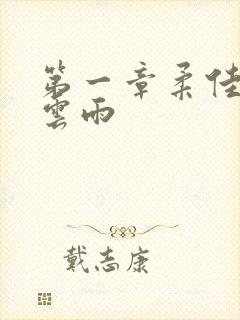 第一章柔佳
雲雨
戴志康